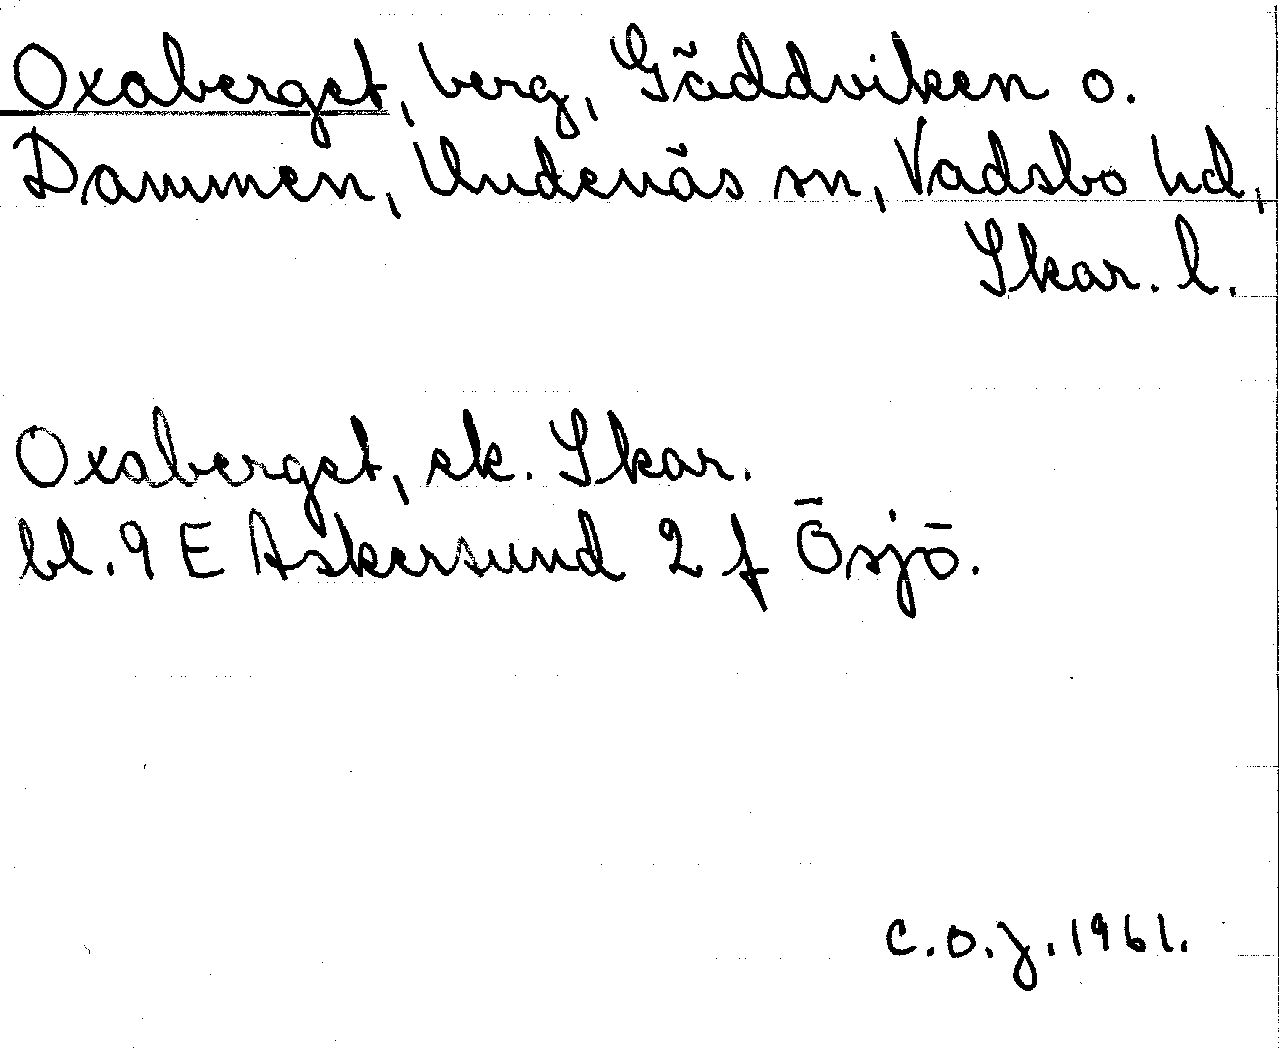 Oxaberget, berg, Gäddviken o.
Dammen, Undenäs sn, Vadsbo hd,
Skar. l.
Oxaberget, ek. Skar.
bl. 9 E Askersund 2 f Ösjö.
C.O.J. 1961.